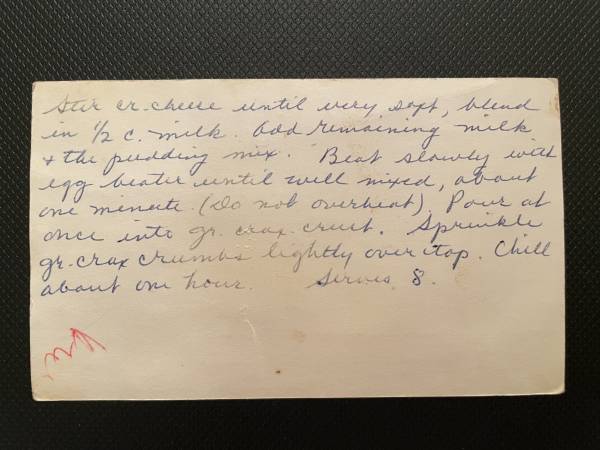 Stir cr. cheese until very soft, blend
in 1/2 c. milk. Add remaining milk
+ the pudding mix. Beat slowly with
egg beater until well mixed, about
one minute (Do not overbeat), Pour at
once into gr. crax crust. Sprinkle
gr. crax crumbs lightly over top. Chill
about one hour. Serves 8.